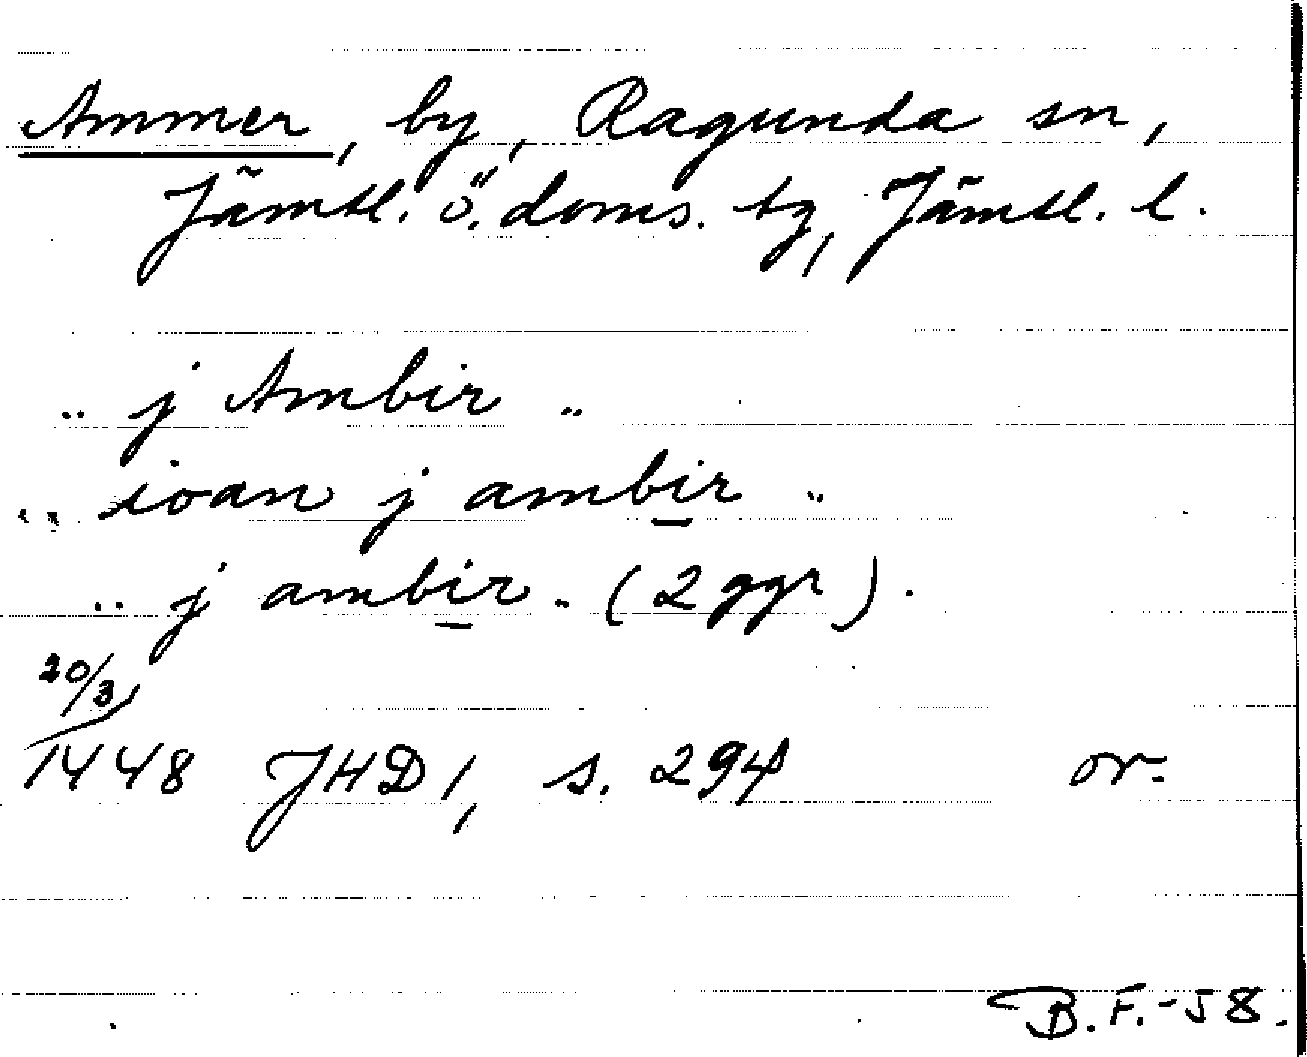 Ammer, by, Ragunda sn,
Jämtl. ö. doms. tg, Jämtl. l.
.. j Ambir ..
.. ioan j ambir ..
.. j ambir .. (2 ggr).
20/3
1448 JHD 1, s. 294 or.
B.F.-58.